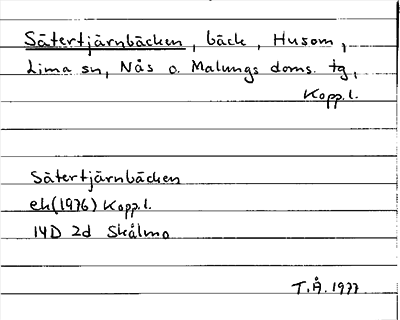 Sätertjärnbäcken, bäck, Husom,
Lima sn, Nås o. Malungs doms. tg,
Kopp.l.
Sätertjärnbäcken
ek(1976) Kopp.l.
14D 2d Skålmo
T.Å. 1977